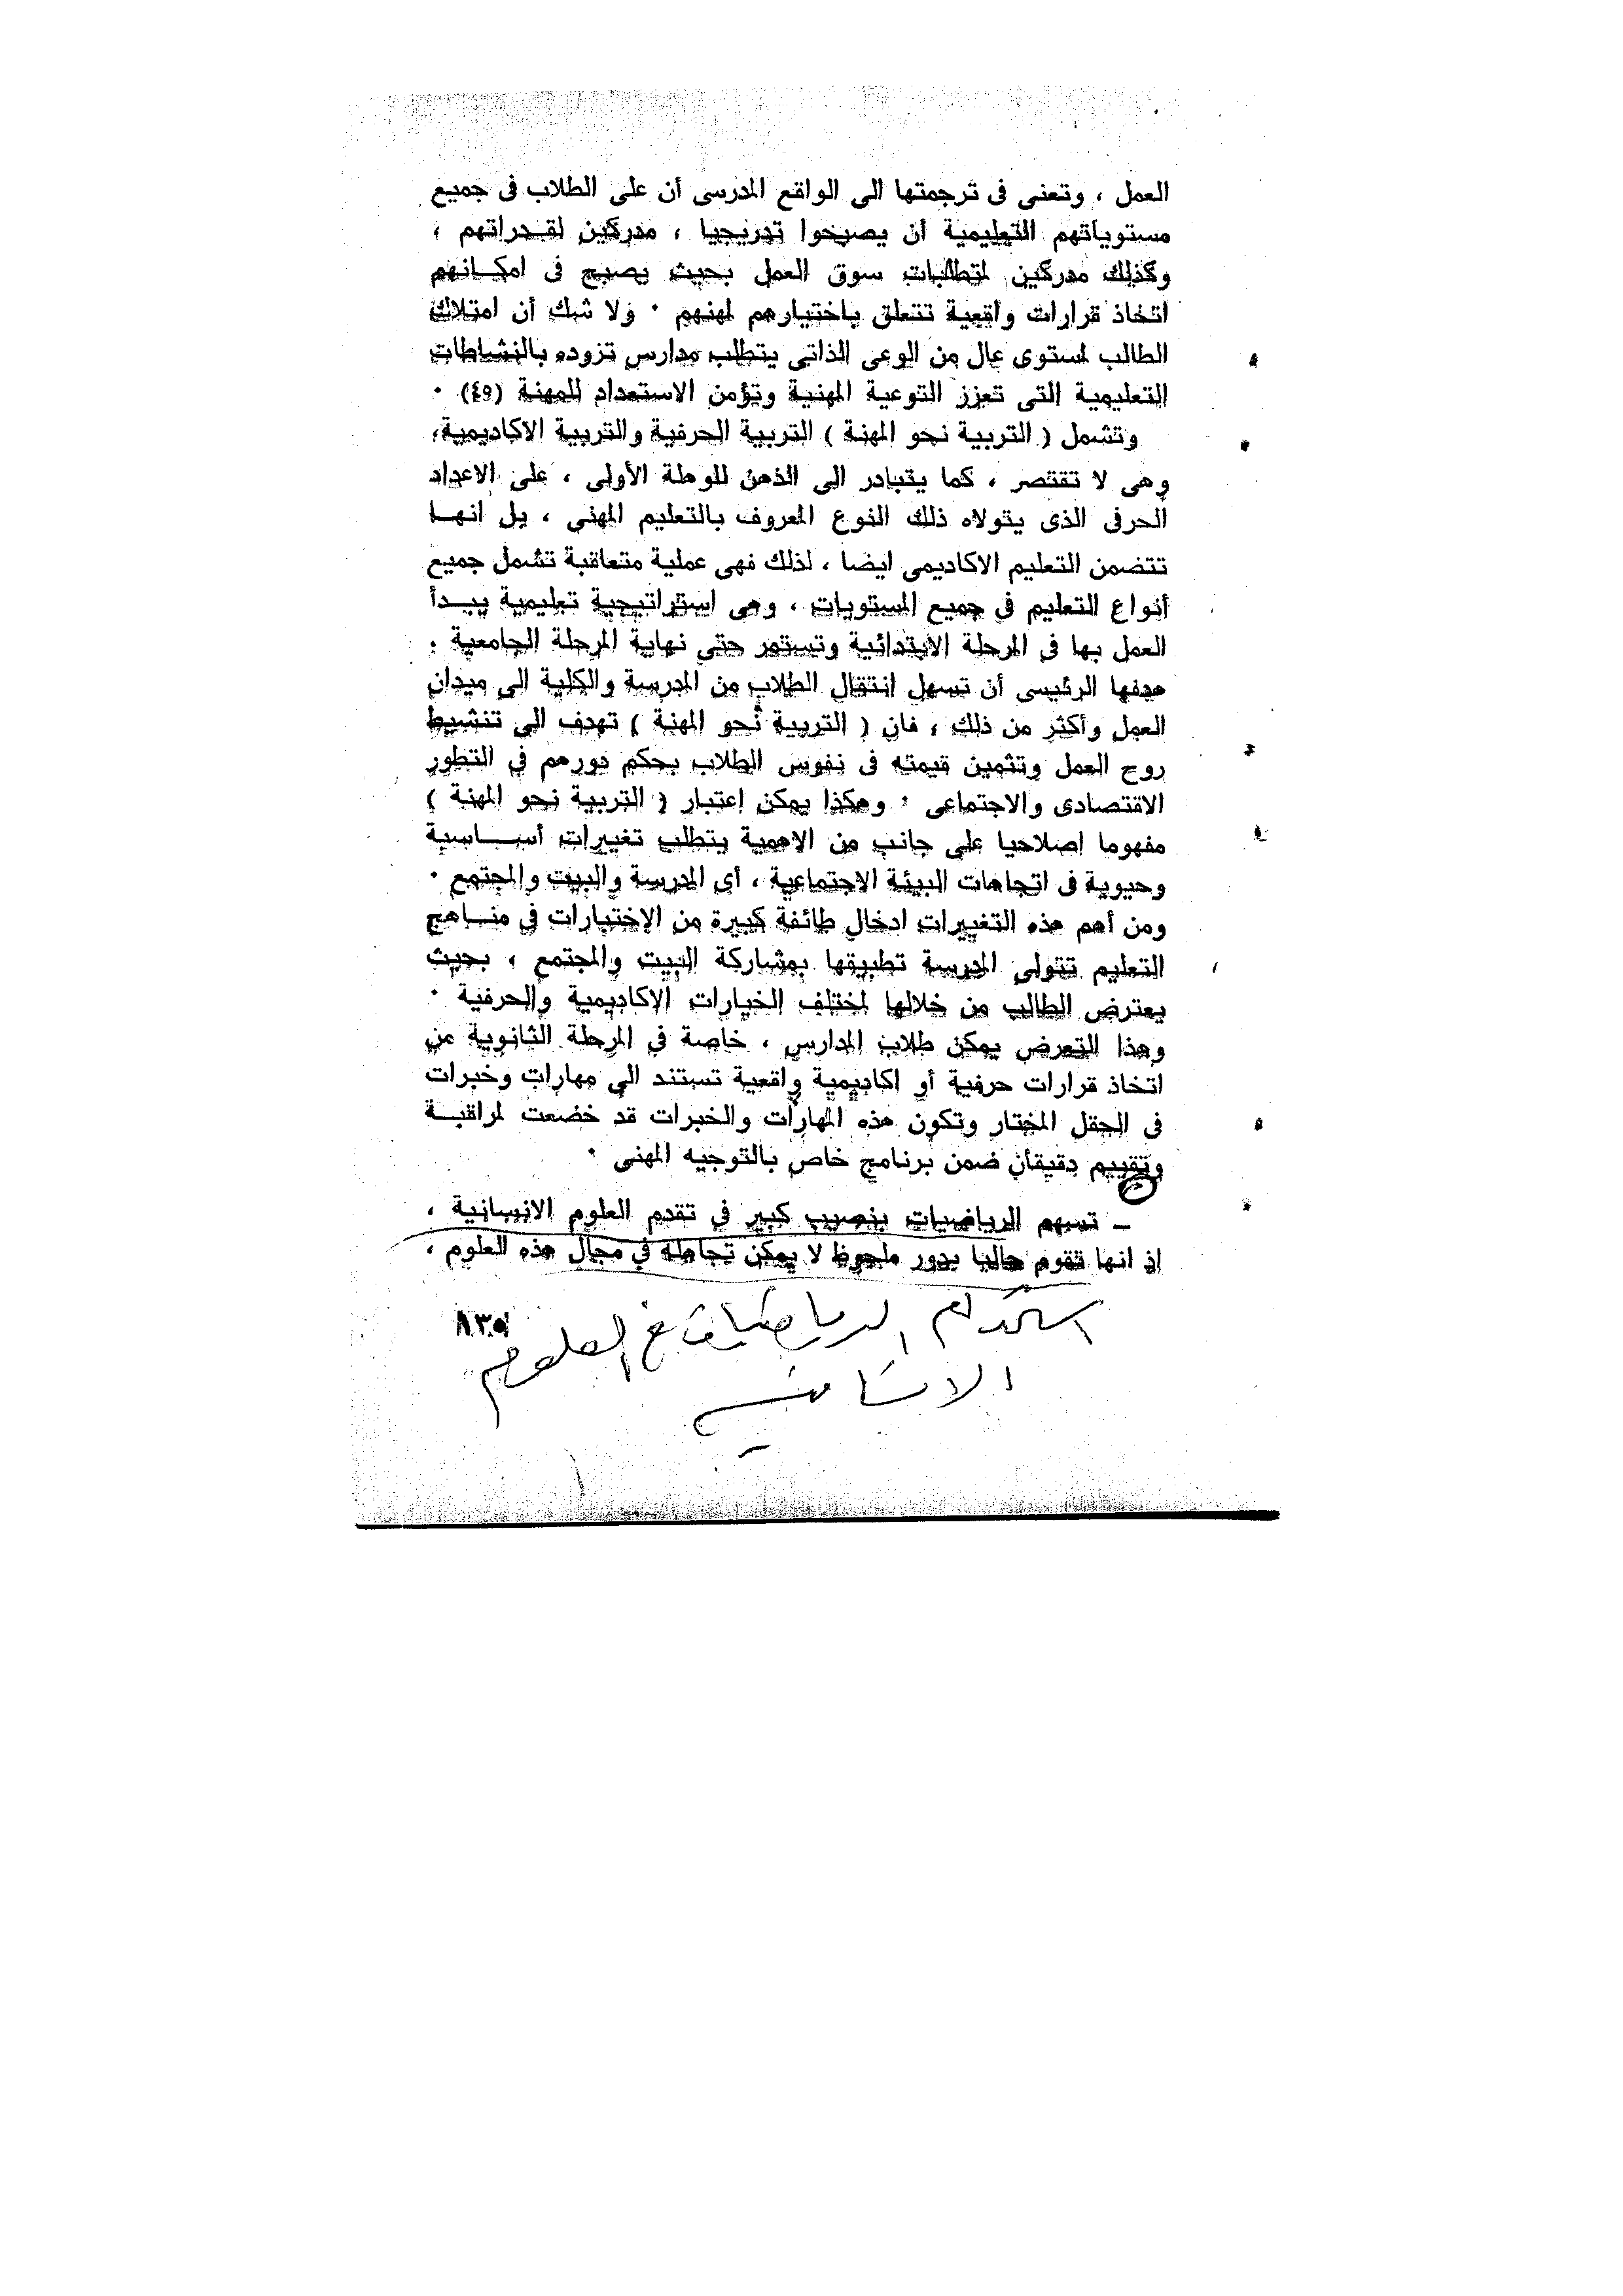 العمل ، وتعنى فى ترجمتها الى الواقع المدرسى أن على الطلاب فى جميع
مستوياتهم التعليمية أن يصبحوا تدريجيا ، مدركين لقـدراتهم ،
وكذلك مدركين لمتطلبات سوق العمل بحيث يصبح فى امكـانهم
اتخاذ قرارات واقعية تتعلق باختيارهم لمهنهم ٠ ولا شك أن امتلاك
الطالب لمستوى عال من الوعى الذاتى يتطلب مدارس تزوده بالنشاطات
التعليمية التى تعزز التوعية المهنية وتؤمن الاستعداد للمهنة (٤٩) ٠
وتشمل ( التربية نحو المهنة ) التربية الحرفية والتربية الاكاديمية،
وهى لا تقتصر ، كما يتبادر الى الذهن للوهلة الأولى ، على الاعداد
الحرفى الذى يتولاه ذلك النوع المعروف بالتعليم المهنى ، بل انهـا
تتضمن التعليم الاكاديمى ايضا ، لذلك فهى عملية متعاقبة تشمل جميع
أنواع التعليم فى جميع المستويات ، وهى استراتيجية تعليمية يبـدأ
العمل بها فى المرحلة الابتدائية وتستمر حتى نهاية المرحلة الجامعية :
هدفها الرئيسى أن تسهل انتقال الطلاب من المدرسة والكلية الى ميدان
العمل وأكثر من ذلك ، فان ( التربية نحو المهنة ) تهدف الى تنشيط
روح العمل وتثمين قيمته فى نفوس الطلاب بحكم دورهم فى التطور
الاقتصادى والاجتماعى ٠ وهكذا يمكن إعتبار ( التربية نحو المهنة )
مفهوما اصلاحيا على جانب من الاهمية يتطلب تغييرات أسـاسية
وحيوية فى اتجاهات البيئة الاجتماعية ، أى المدرسة والبيت والمجتمع ٠
ومن أهم هذه التغييرات ادخال طائفة كبيرة من الاختيارات فى منـاهج
التعليم تتولى المدرسة تطبيقها بمشاركة البيت والمجتمع ، بحيث
يعترض الطالب من خلالها لمختلف الخيارات الاكاديمية والحرفية ٠
وهذا التعرض يمكن طلاب المدارس ، خاصة فى المرحلة الثانوية من
اتخاذ قرارات حرفية أو اكاديمية واقعية تستند الى مهارات وخبرات
فى الحقل المختار وتكون هذه المهارات والخبرات قد خضعت لمراقبـة
وتقييم دقيقان ضمن برنامج خاص بالتوجيه المهنى ٠
ـ تسهم الرياضيات بنصيب كبير فى تقدم العلوم الانسانية ،
اذ انها تقوم حاليا بدور ملحوظ لا يمكن تجاهله فى مجال هذه العلوم ،
استخدام الرياضيات فى العلوم
الانسانية